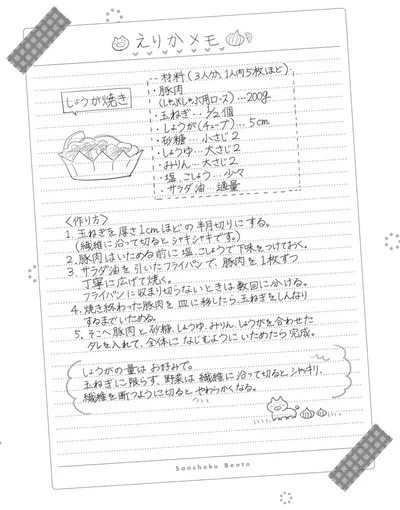 えりかメモ
しょうが焼き
材料(3人分、1人約5枚ほど)
・豚肉
(しゃぶしゃぶ用ロース)…200g
・玉ねぎ…1/2個
・しょうが(チューブ)…5cm
・砂糖…小さじ2
・しょうゆ…大さじ2
・みりん…大さじ2
・塩、こしょう…少々
・サラダ油…適量
〈作り方〉
1. 玉ねぎを厚さ1cmほどの半月切りにする。
(繊維に沿って切るとシャキシャキです。)
2. 豚肉はいためる前に塩、こしょうで下味をつけておく。
3. サラダ油を引いたフライパンで、豚肉を1枚ずつ
丁寧に広げて焼く。
フライパンに収まり切らないときは数回に分ける。
4. 焼き終わった豚肉を皿に移したら、玉ねぎをしんなり
するまでいためる。
5. そこへ豚肉と砂糖、しょうゆ、みりん、しょうがを合わせた
タレを入れて、全体になじむようにいためたら完成。
しょうがの量はお好みで。
玉ねぎに限らず、野菜は繊維に沿って切るとシャッキリ、
繊維を断つように切るとやわらかくなる。
Sanshoku Bento